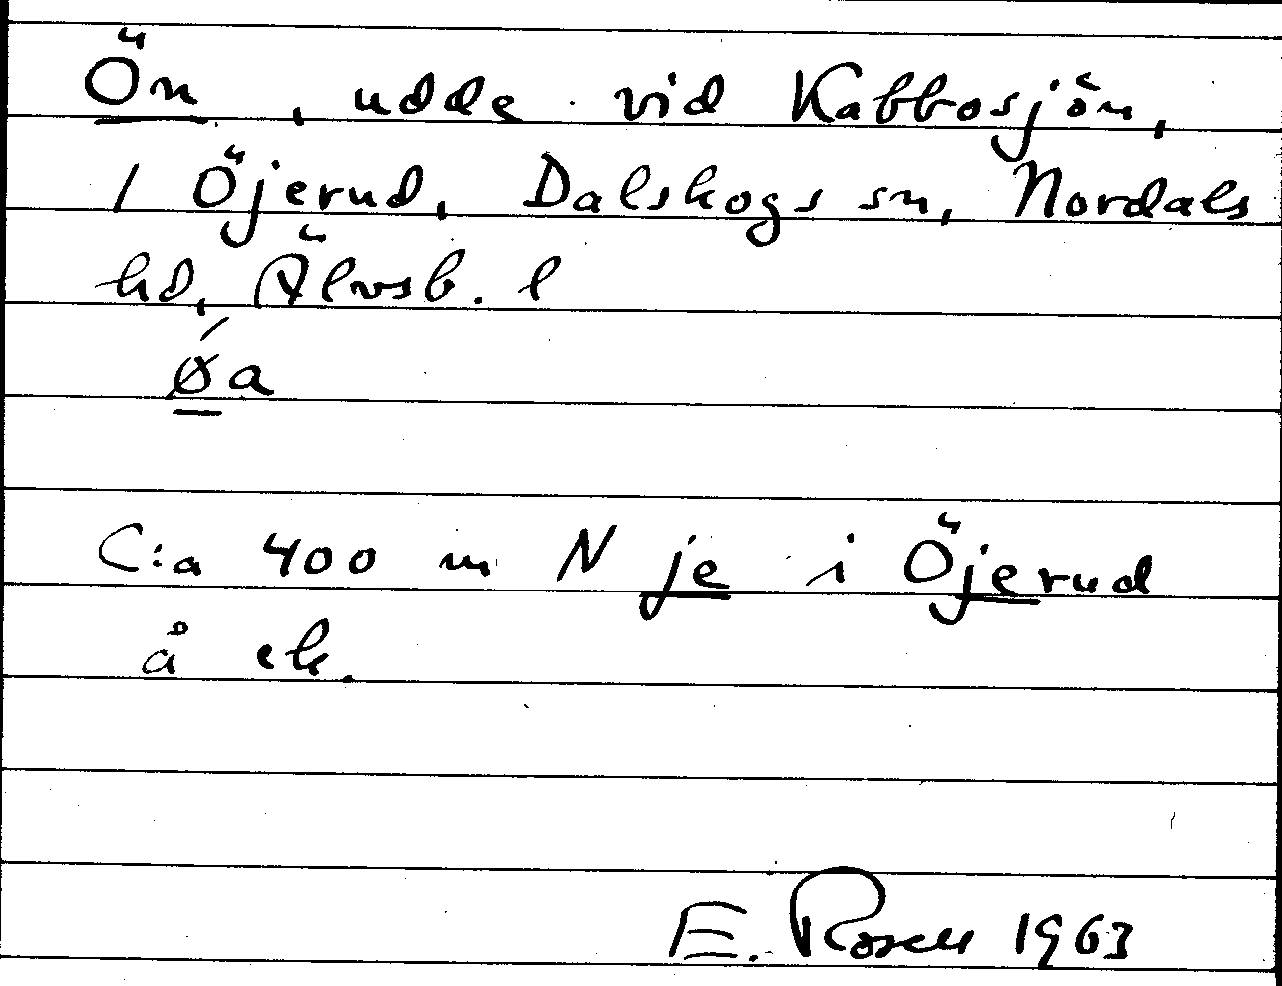 Ön, udde vid Kabbosjön,
1 Öjerud, Dalskogs sn, Nordals
hd, Älvsb. l
ǿa
C:a 400 m N je i Öjerud
å ek.
E. Rosell 1963